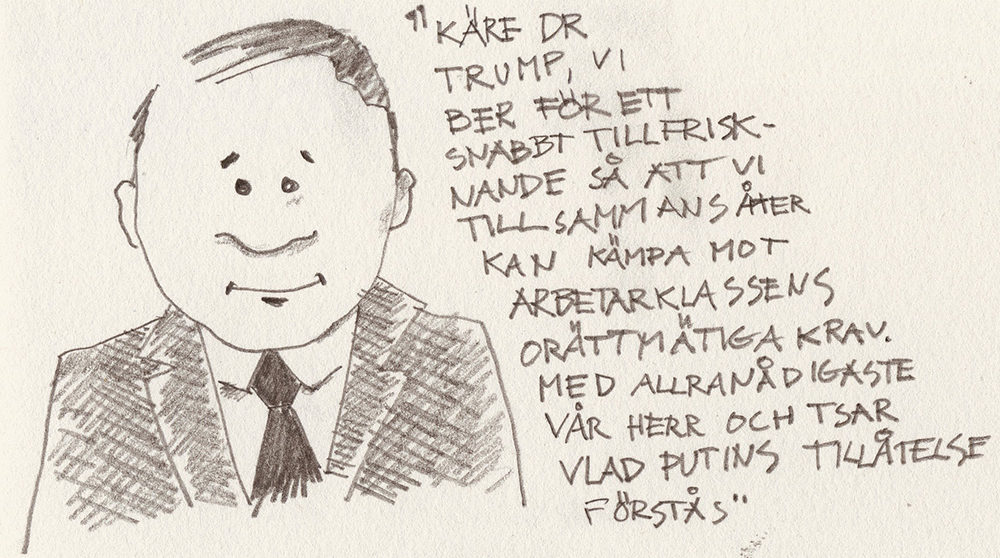 "KÄRE DR
TRUMP, VI
BER FÖR ETT
SNABBT TILLFRISK-
NANDE SÅ ATT VI
TILLSAMMANS ÅTER
KAN KÄMPA MOT
ARBETARKLASSENS
ORÄTTMÄTIGA KRAV.
MED ALLRANÅDIGASTE
VÅR HERR OCH TSAR
VLAD PUTINS TILLÅTELSE
FÖRSTÅS"